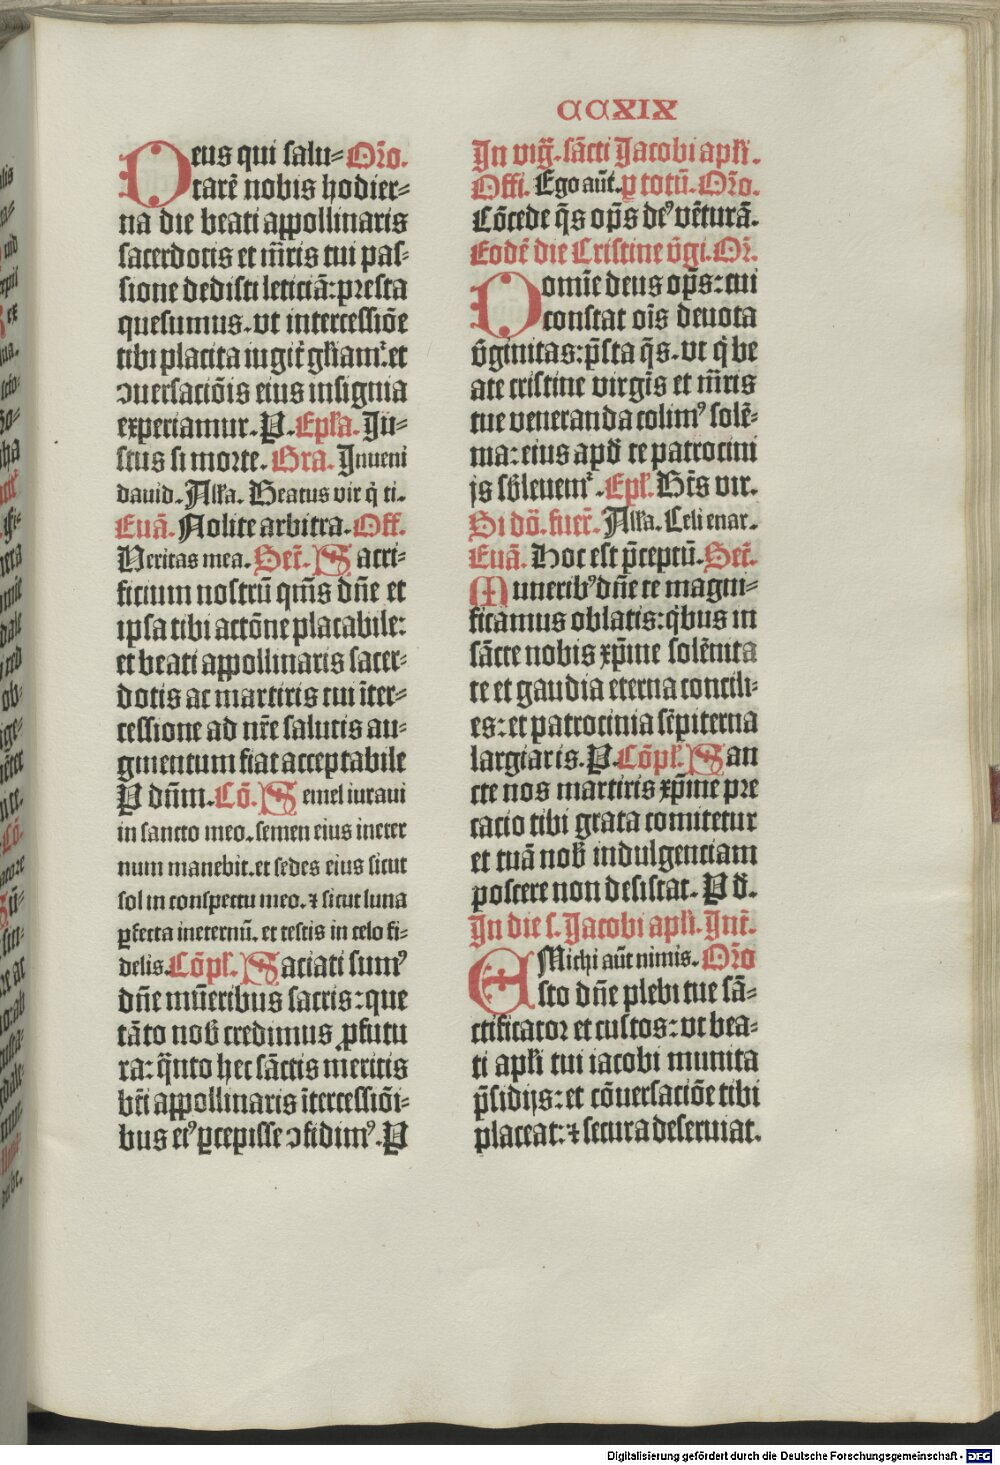 CCXIX
Deus qui salu⸗Or̃o.
tarē nobis hodier⸗
na die beati appollinaris
sacerdotis et m̄ris tui pas⸗
sione dedisti leticiā: presta
quesumus. vt intercessiōe
tibi placita iugit̄ gl̄iamr̄. et
ↄuersaciōis eius insignia
experiamur. P. Epl̄a. Ju⸗
stus si morte. Gra. Jnueni
dauid. All̄a. Beatus vir q̇ ti.
Euā. Nolite arbitra. Off.
Veritas mea. Secr̄. Sacri⸗
ficium nostrū qm̄s dn̄e et
ipsa tibi actōne placabile:
et beati appollinaris sacer⸗
dotis ac martiris tui īter⸗
cessione ad nr̄e salutis au⸗
gmentum fiat acceptabile
P dn̄m. Cō. Semel iuraui
in sancto meo. semen eius ineter
num manebit. et sedes eius sicut
sol in conspectu meo. ⁊ sicut luna
ꝑfecta ineternū. et testis in celo fi⸗
delis. Cōpl̄. Saciati sumꝰ
dn̄e mūeribus sacris: que
tāto nob̄ credimus ꝓfutu
ra: q̄nto hec sāctis meritis
bēi appollinaris ītercessiōi⸗
bus eiꝰ ꝑcepisse ↄfidimꝰ. P
Jn viḡ. sācti Jacobi apl̄i.
Offi. Ego aūt. ꝑ totū. Or̃o.
Cōcede q̄s op̄s deꝰ vētur̄ā.
Eodē die Cristine v̄gi. Or̃.
Domīe deus op̄s: cui
constat oīs deuota
v̄ginitas: p̄sta q̄s. vt q̄ be
ate cristine virgīs et m̄ris
tue veneranda colimꝰ solē⸗
nia: eius apd̄ te patrocini
js sb̄leuemr̄. Epl̄. Bt̄s vir.
Si dō. fuer̄. All̄a. Celi enar.
Euā. Hoc est p̄ceptū. Secr̄.
Muneribꝰ dn̄e te magni⸗
ficamus oblatis: q̇bus in
sācte nobis xp̄ine solēnita
te et gaudia eterna concili⸗
es: et patrocinia sēpiterna
largiaris. P. Cōpl̄. San
cte nos martiris xp̄ine pre
catio tibi grata comitetur
et tuā nob̄ indulgenciam
poscere non desistat. P d̄.
Jn die s. Jacobi apl̄i. Jnt̄.
Michi aūt nimis. Or̃o
Esto dn̄e plebi tue sā⸗
ctificator et custos: vt bea⸗
ti apl̄i tui iacobi munita
p̄sidijs: et cōuersaciōe tibi
placeat: ⁊ secura deseruiat.
Digitalisierung gefördert durch die Deutsche Forschungsgemeinschaft - DFG